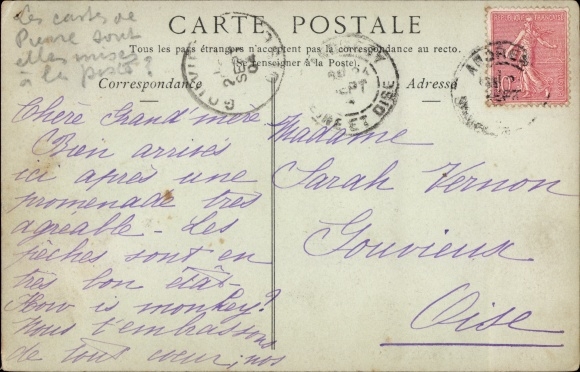 Les cartes de
Pierre sont
elles mises
à la poste ?
CARTE POSTALE
Tous les pays étrangers n'acceptent pas la correspondance au recto.
(Se renseigner à la Poste).
Correspondance
Adresse
RÉPUBLIQUE FRANÇAISE
GOUVIEUX
SEINE ET OISE
Chère Grand'mère
Bien arrivés
ici après une
promenade très
agréable - Les
pêches sont en
très bon état -
How is monkey?
Nous t'embrassons
de tout coeur, nos
Madame
Sarah Vernon
Gouvieux
Oise